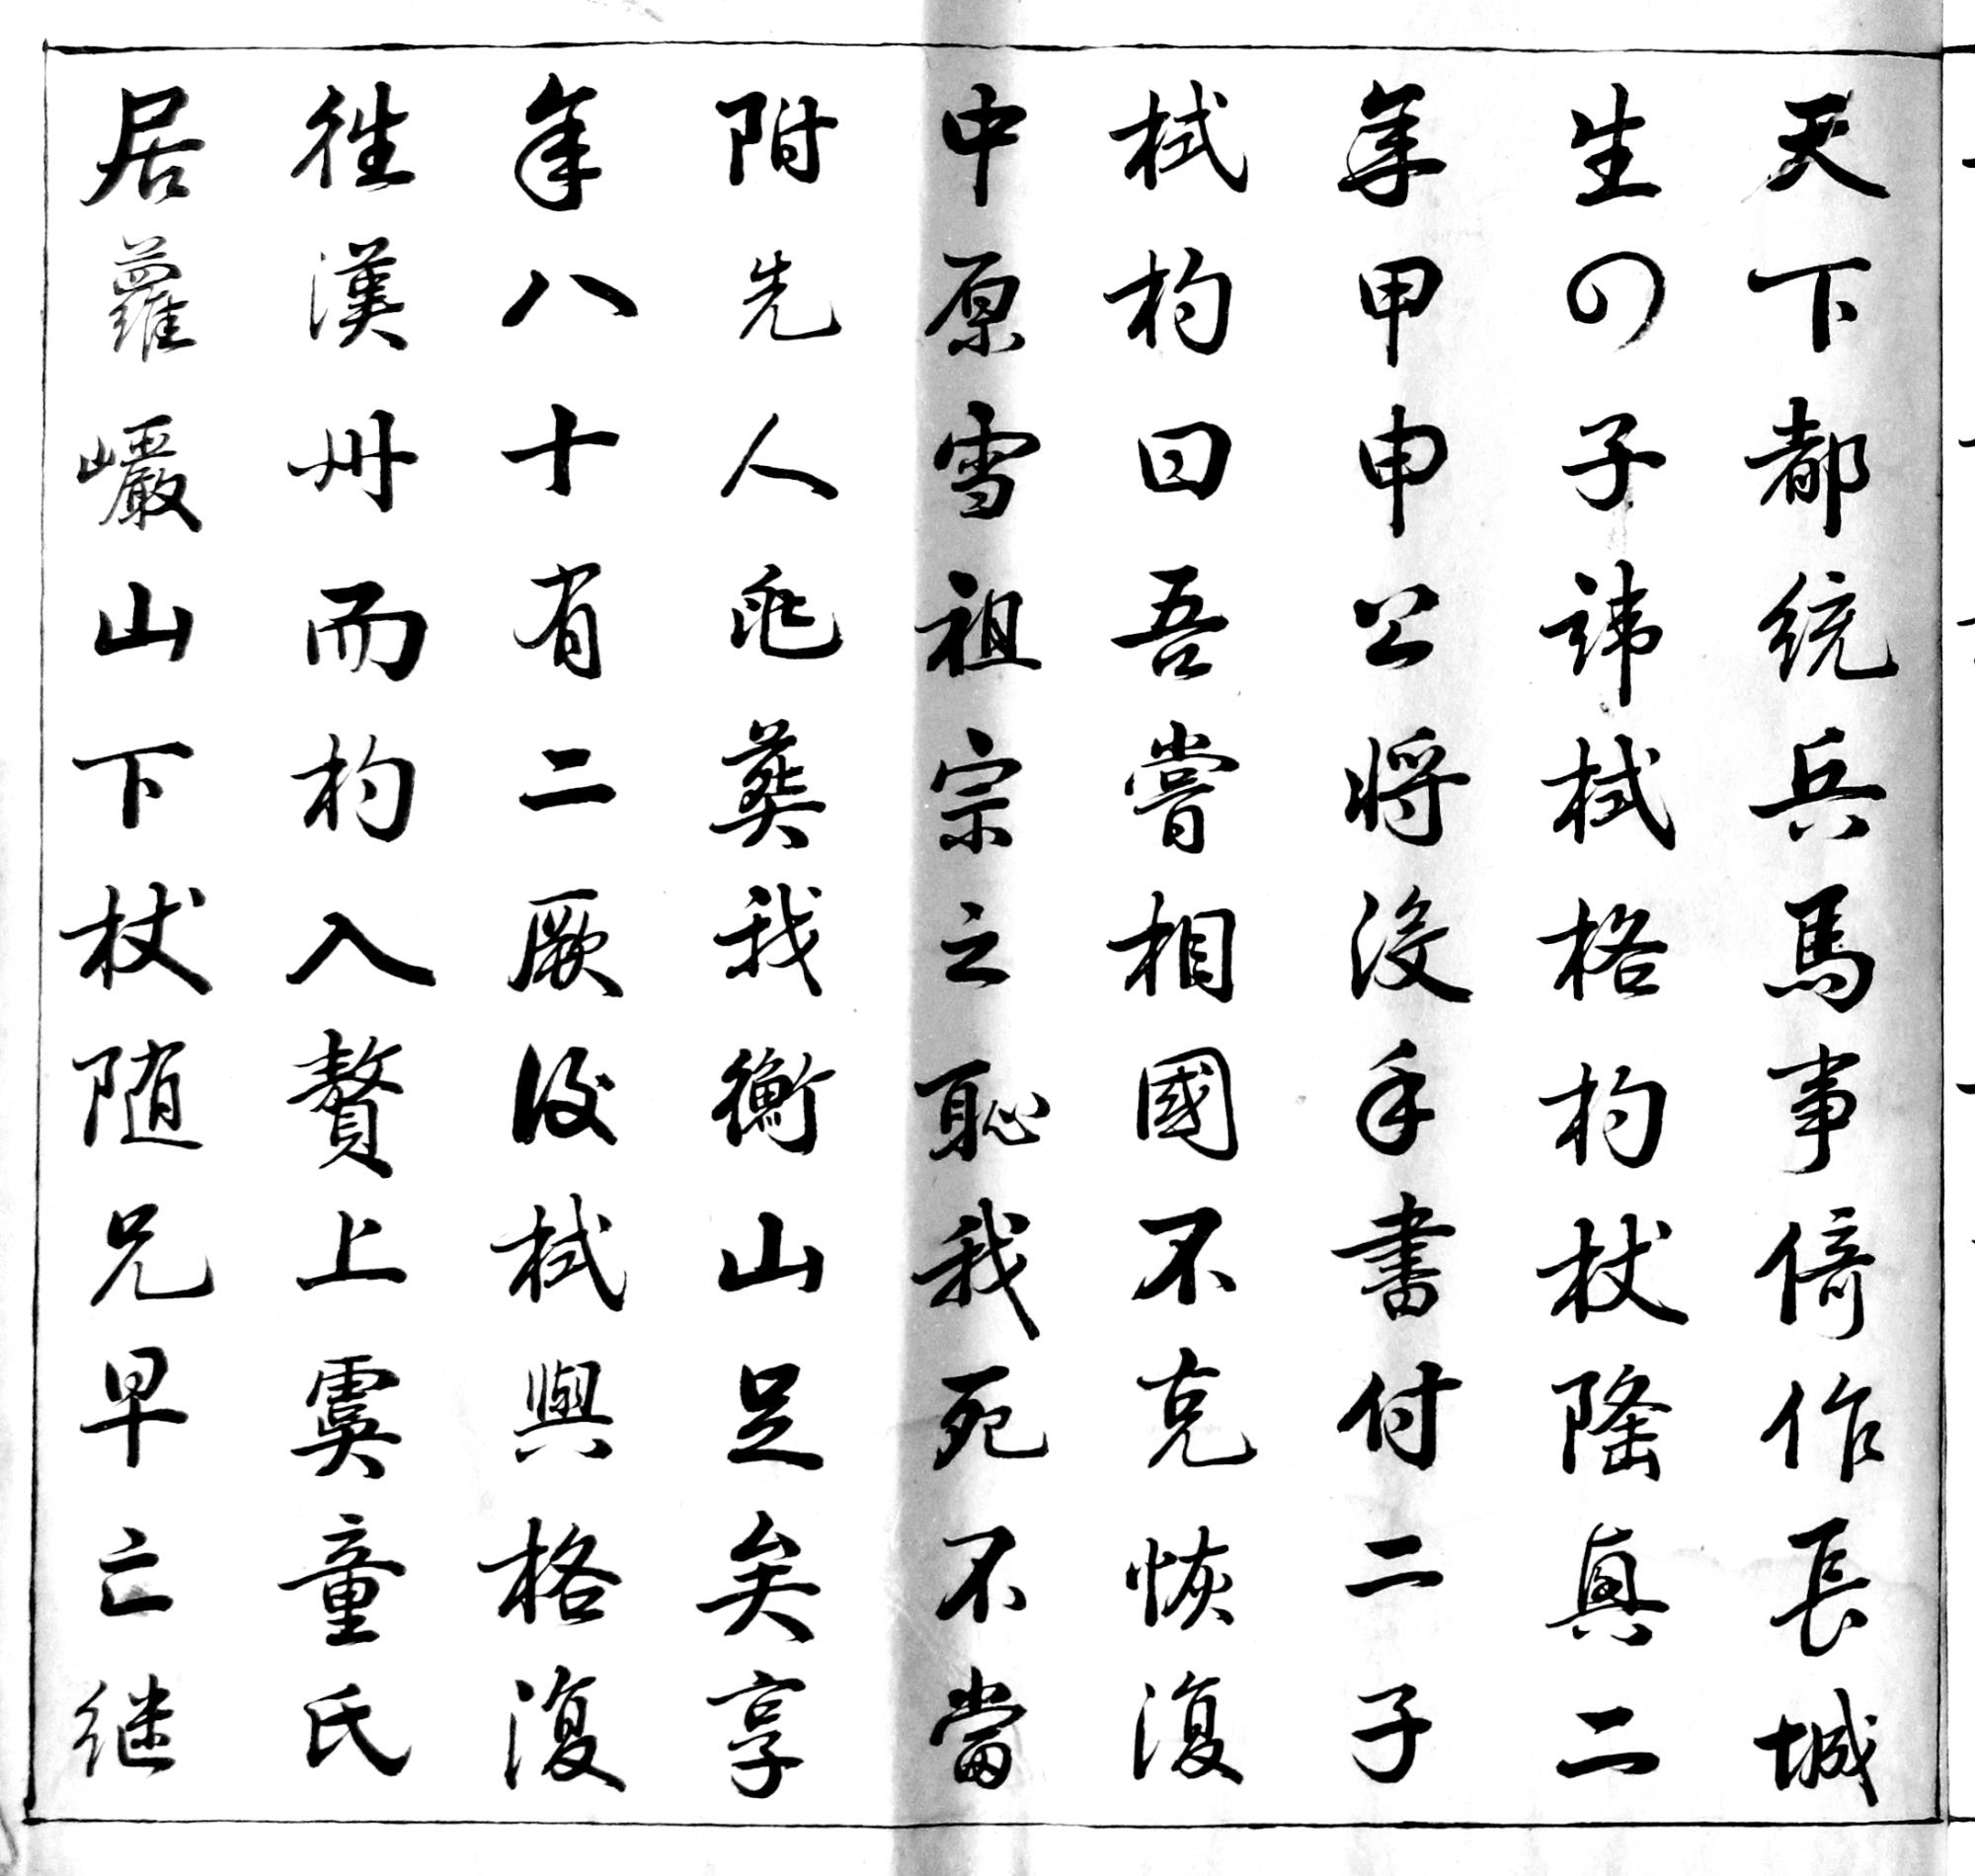 天下都統兵馬事倚作長城
生四子諱栻格杓杖隆興二
年甲申公將沒手書付二子
栻杓曰吾嘗相國不克恢復
中原雪祖宗之恥我死不當
附先人兆葬我衡山足矣享
年八十有二厥後栻與格復
徃漢州而杓入贅上虞童氏
居蘿巖山下杖随兄早亡继